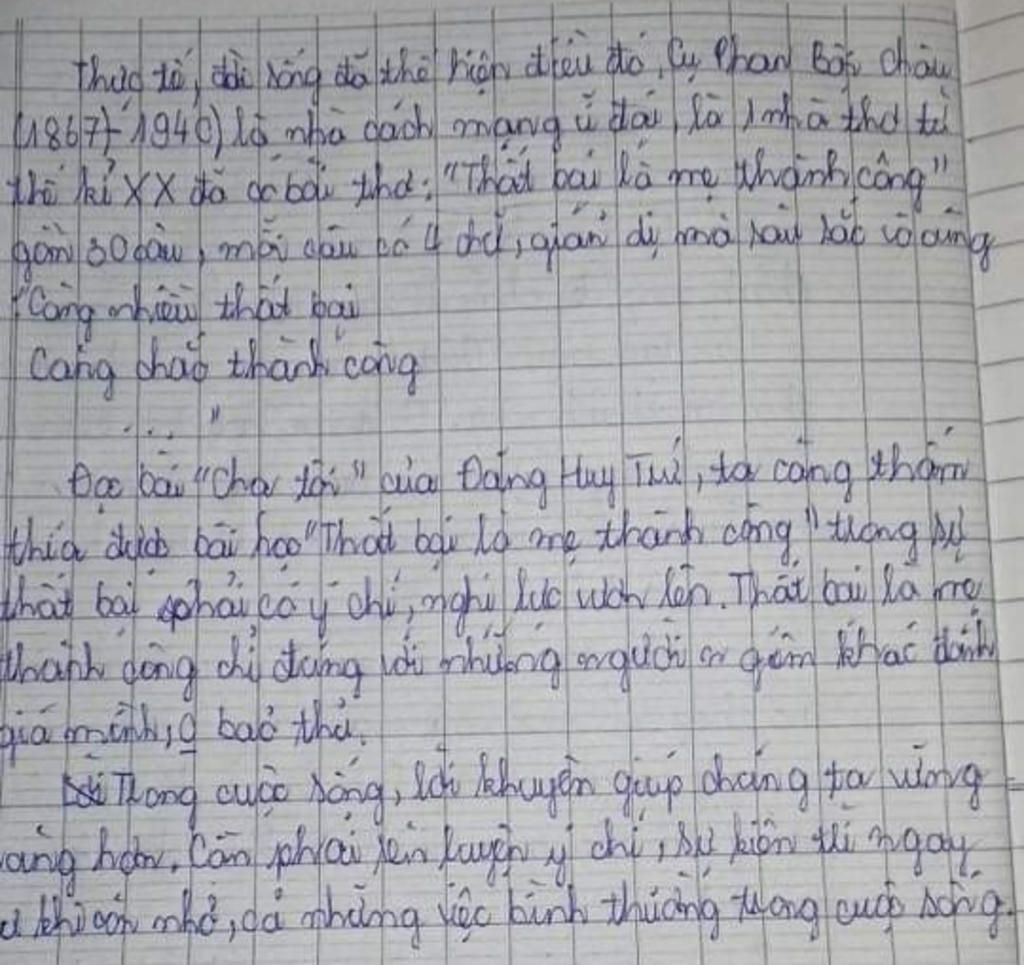 Thực tế, đời sống đã thể hiện điều đó, Cụ Phan Bội Châu
(1867-1940) là nhà cách mạng vĩ đại, là 1 nhà thơ từ
thế kỉ XX đã có bài thơ: "Thất bại là mẹ thành công"
gồm 30 câu, mỗi câu có 4 chữ, giản dị mà sâu sắc vô cùng
"Càng nhiều thất bại
Càng chắc thành công
...."
Đọc bài "Cha tôi" của Đặng Huy Trứ, ta càng thấm
thía được bài học "Thất bại là mẹ thành công" trong sự
thất bại phải có ý chí, nghị lực vươn lên. Thất bại là mẹ
thành công chỉ đúng với những người nghiêm khắc đánh
giá mình, bảo thủ.
Trong cuộc sống, lời khuyên giúp chúng ta vững
vàng hơn. Cần phải rèn luyện ý chí, sự kiên trì ngay
khi còn nhỏ, cả những việc bình thường trong cuộc sống.